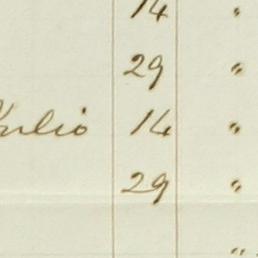 14 "
29 "
Julio 14 "
29 "
"